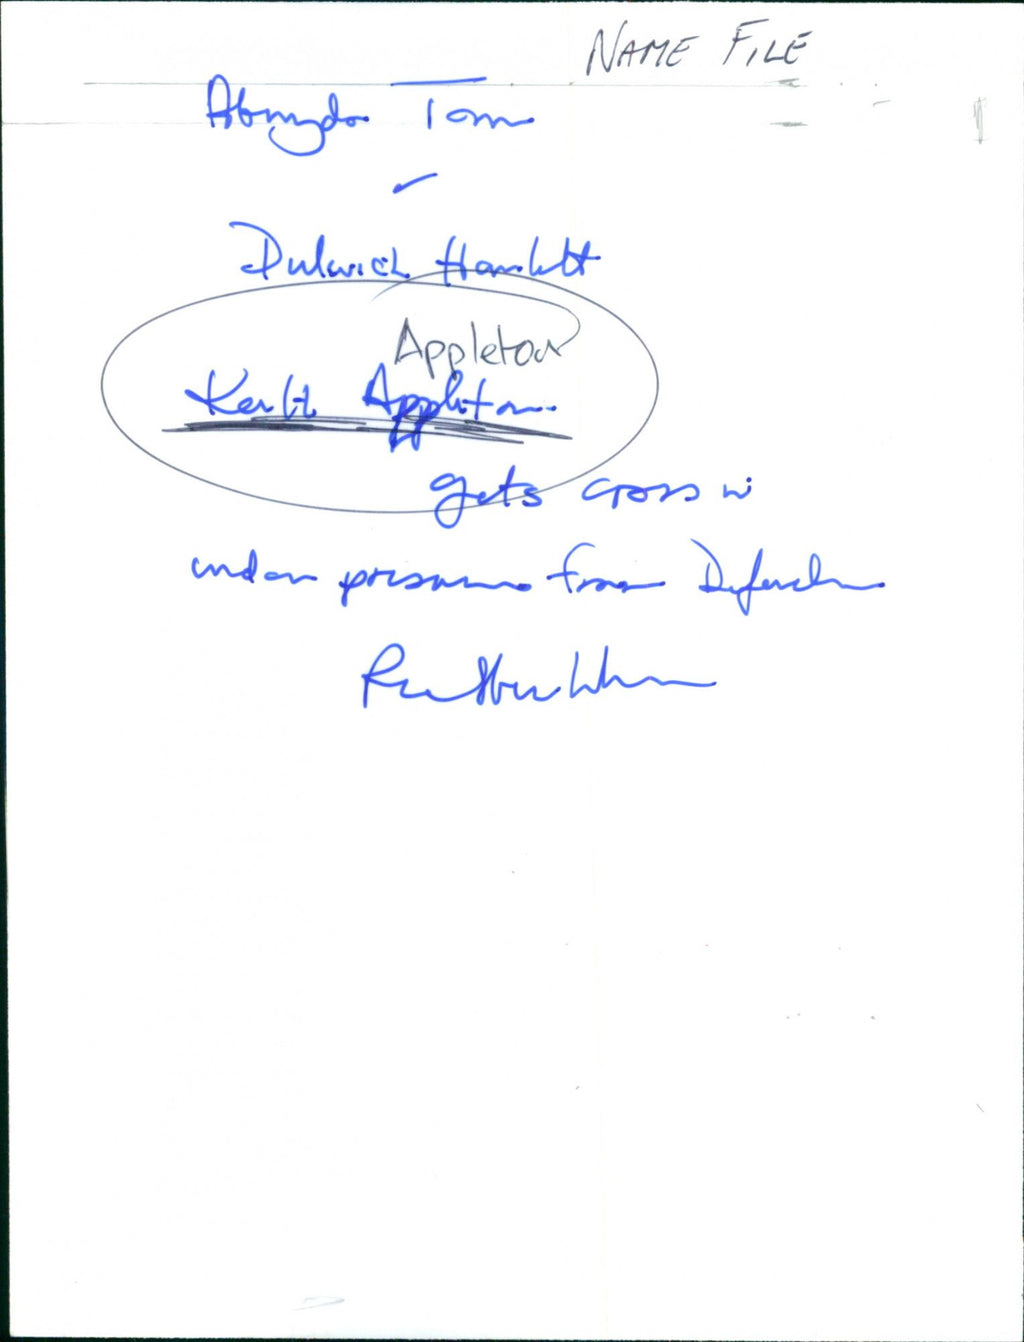 NAME FILE
Abingdon Town
v
Dulwich Hamlett
Appleton
Keith Appleton
gets cross in
under pressure from Defender